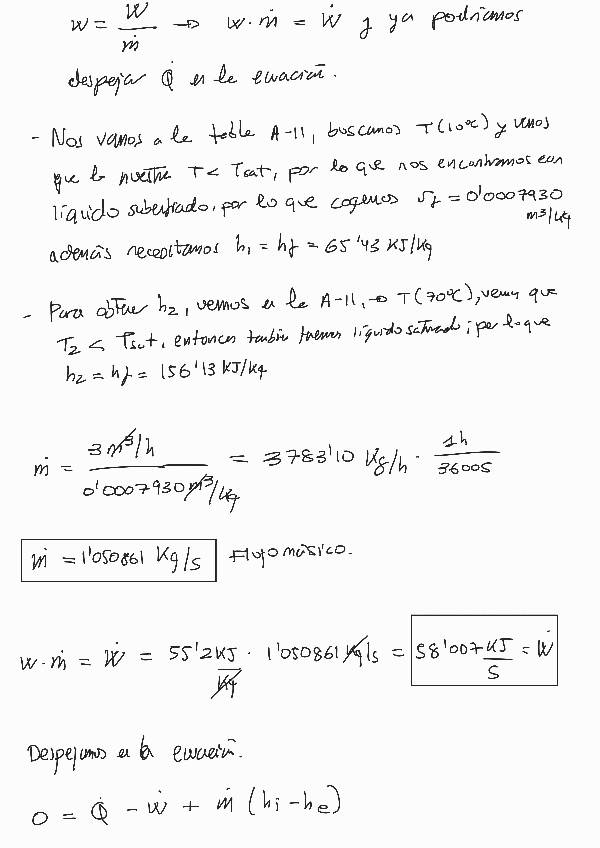 w = Ẇ/ṁ → w·ṁ = Ẇ y ya podríamos
despejar Q̇ en la ecuación.
- Nos vamos a la tabla A-11, buscamos T(10ºC) y vemos
que la nuestra T < Tsat, por lo que nos encontramos con
líquido subenfriado, por lo que cogemos vf = 0'0007930 m³/kg
además necesitamos h₁ = hf = 65'43 KJ/Kg
- Para obtener h₂, vemos en la A-11, → T(70ºC), vemos que
T₂ < Tsat, entonces también tenemos líquido saturado; por lo que
h₂ = hf = 156'13 KJ/Kg
ṁ = 3 m³/h / 0'0007930 m³/kg = 3783'10 Kg/h · 1h/3600s
ṁ = 1'050861 Kg/s Flujo másico.
w·ṁ = Ẇ = 55'2 KJ/Kg · 1'050861 Kg/s = 58'007 KJ/s = Ẇ
Despejamos en la ecuación.
0 = Q̇ - Ẇ + ṁ (hi - he)